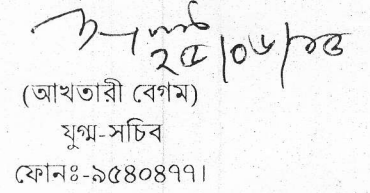 ২৫/০৬/২৩
(আখতারী বেগম)
যুগ্ম-সচিব
ফোনঃ-৯৫৪০৪৭৭।